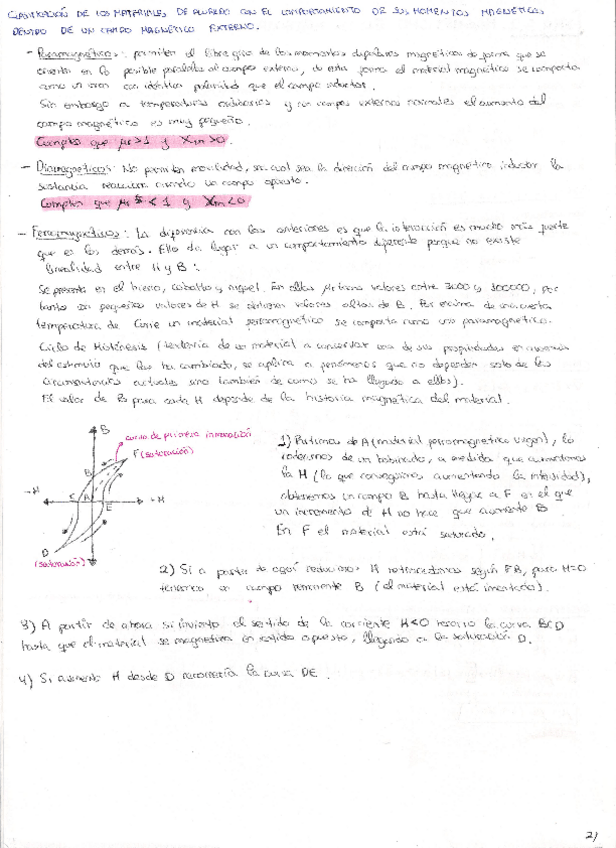 CLASIFICACIÓN DE LOS MATERIALES, DE ACUERDO CON EL COMPORTAMIENTO DE SUS MOMENTOS MAGNÉTICOS
DENTRO DE UN CAMPO MAGNÉTICO EXTERNO.
- Paramagnéticos: permiten el libre giro de los momentos dipolares magnéticos de forma que se
orientan en lo posible paralelos al campo externo, de esta forma el material magnético se comporta
como un imán con idéntica polaridad que el campo inductor.
Sin embargo a temperaturas ordinarias y con campos externos normales el aumento del
campo magnético es muy pequeño.
Cumplen que μr>1 y Xm>0.
- Diamagnéticos: No permiten movilidad, sea cual sea la dirección del campo magnético inductor la
sustancia reacciona creando un campo opuesto.
Cumplen que μr < 1 y Xm<0
- Ferromagnéticos: La diferencia con los anteriores es que la interacción es mucho más fuerte
que en los demás. Ello da lugar a un comportamiento diferente porque no existe
linealidad entre H y B:
Se presenta en el hierro, cobalto y níquel. En ellos μr toma valores entre y 100000, por
tanto con pequeños valores de H se obtienen valores altos de B. Por encima de una cierta
temperatura de Curie un material ferromagnético se comporta como uno paramagnético.
Ciclo de Histéresis (tendencia de un material a conservar una de sus propiedades en ausencia
del estímulo que las ha cambiado, se aplica a fenómenos que no dependen solo de las
circunstancias actuales sino también de como se ha llegado a ellas).
El valor de B para cada H depende de la historia magnética del material.
B
curva de primera imanación
F (saturación)
B
-H
C A E
H
D
(saturación)
1) Partimos de A (material ferromagnético virgen), lo
rodeamos de un bobinado, a medida que aumentamos
la H (lo que conseguimos aumentando la intensidad),
obtenemos un campo B hasta llegar a F en el que
un incremento de H no hace que aumente B
En F el material está saturado.
2) Si a partir de aquí reducimos H retrocedemos según FB, para H=0
tenemos un campo remanente B (el material está imantado).
3) A partir de ahora si invierto el sentido de la corriente H<0 recorro la curva BCD
hasta que el material se magnetiza en sentido opuesto, llegando a la saturación D.
4) Si aumento H desde D recorrería la curva DE.
2)